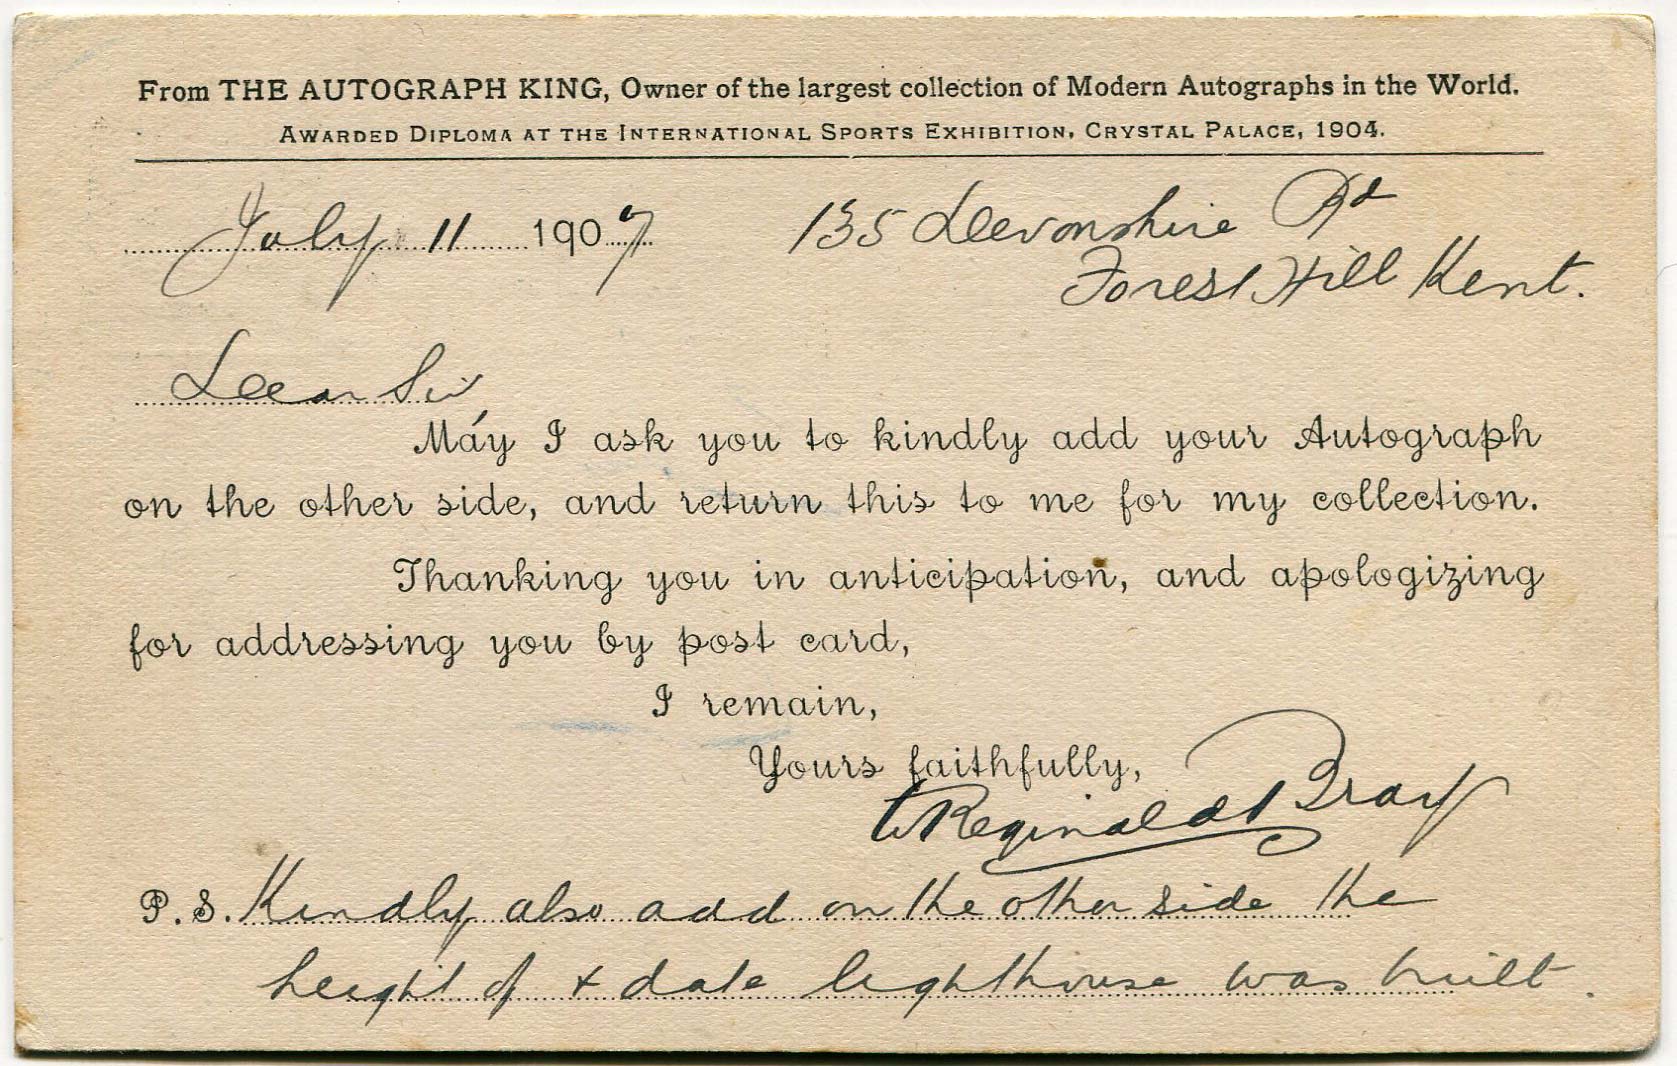 From THE AUTOGRAPH KING, Owner of the largest collection of Modern Autographs in the World.
AWARDED DIPLOMA AT THE INTERNATIONAL SPORTS EXHIBITION, CRYSTAL PALACE, 1904.
July 11 1907 135 Devonshire Rd
Forest Hill Kent.
Dear Sir
May I ask you to kindly add your Autograph
on the other side, and return this to me for my collection.
Thanking you in anticipation, and apologizing
for addressing you by post card,
I remain,
Yours faithfully,
W Reginald Bray
P.S. Kindly also add on the other side the
height of & date lighthouse was built.